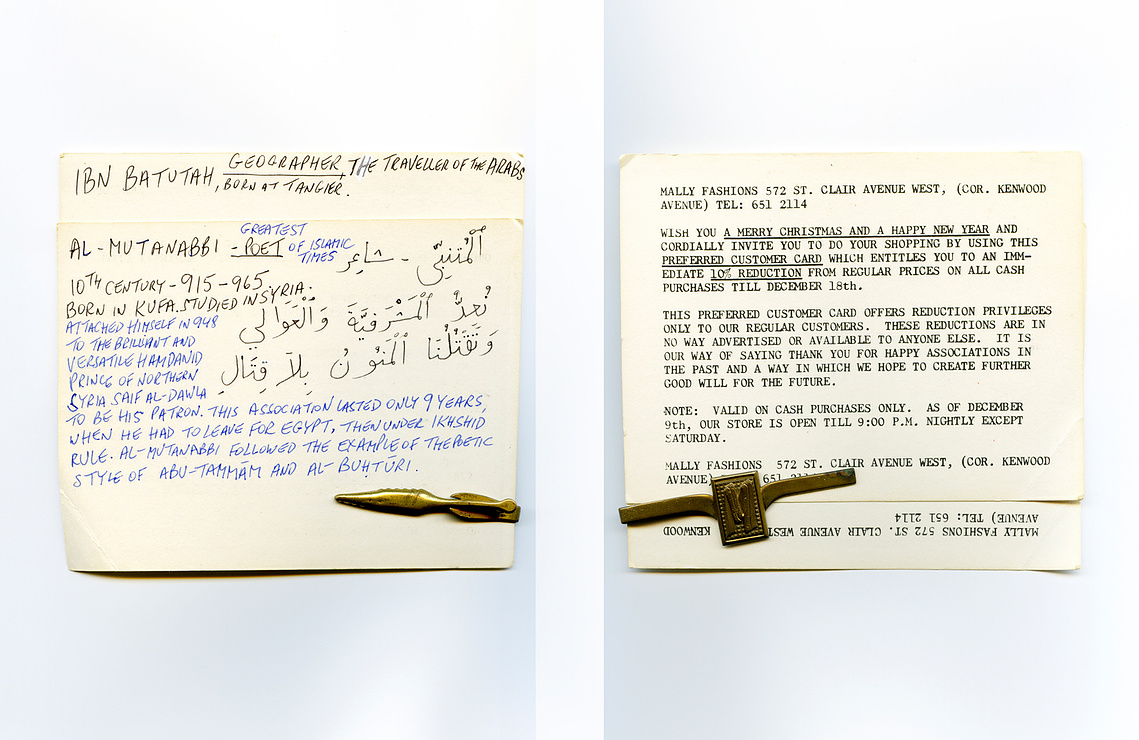 IBN BATUTAH, GEOGRAPHER, THE TRAVELLER OF THE ARABS
BORN AT TANGIER.
AL-MUTANABBI - POET GREATEST OF ISLAMIC TIMES
اَلْمُتَنَبِّي - شَاعِر
10TH CENTURY - 915-965.
BORN IN KUFA. STUDIED IN SYRIA.
نُعِدُّ ٱلْمَشْرَفِيَّةَ وَٱلْعَوَالِي
وَتَقْتُلُنَا ٱلْمَنُونُ بِلَا قِتَالِ
ATTACHED HIMSELF IN 948
TO THE BRILLIANT AND
VERSATILE HAMDANID
PRINCE OF NORTHERN
SYRIA SAIF AL-DAWLA
TO BE HIS PATRON. THIS ASSOCIATION LASTED ONLY 9 YEARS,
WHEN HE HAD TO LEAVE FOR EGYPT, THEN UNDER IKHSHID
RULE. AL-MUTANABBI FOLLOWED THE EXAMPLE OF THE POETIC
STYLE OF ABU-TAMMĀM AND AL-BUḤTŪRI.
MALLY FASHIONS 572 ST. CLAIR AVENUE WEST, (COR. KENWOOD
AVENUE) TEL: 651 2114
WISH YOU A MERRY CHRISTMAS AND A HAPPY NEW YEAR AND
CORDIALLY INVITE YOU TO DO YOUR SHOPPING BY USING THIS
PREFERRED CUSTOMER CARD WHICH ENTITLES YOU TO AN IMM-
EDIATE 10% REDUCTION FROM REGULAR PRICES ON ALL CASH
PURCHASES TILL DECEMBER 18th.
THIS PREFERRED CUSTOMER CARD OFFERS REDUCTION PRIVILEGES
ONLY TO OUR REGULAR CUSTOMERS. THESE REDUCTIONS ARE IN
NO WAY ADVERTISED OR AVAILABLE TO ANYONE ELSE. IT IS
OUR WAY OF SAYING THANK YOU FOR HAPPY ASSOCIATIONS IN
THE PAST AND A WAY IN WHICH WE HOPE TO CREATE FURTHER
GOOD WILL FOR THE FUTURE.
NOTE: VALID ON CASH PURCHASES ONLY. AS OF DECEMBER
9th, OUR STORE IS OPEN TILL 9:00 P.M. NIGHTLY EXCEPT
SATURDAY.
MALLY FASHIONS 572 ST. CLAIR AVENUE WEST, (COR. KENWOOD
AVENUE) 651
MALLY FASHIONS 572 ST. CLAIR AVENUE WEST KENWOOD
AVENUE) TEL: 651 2114